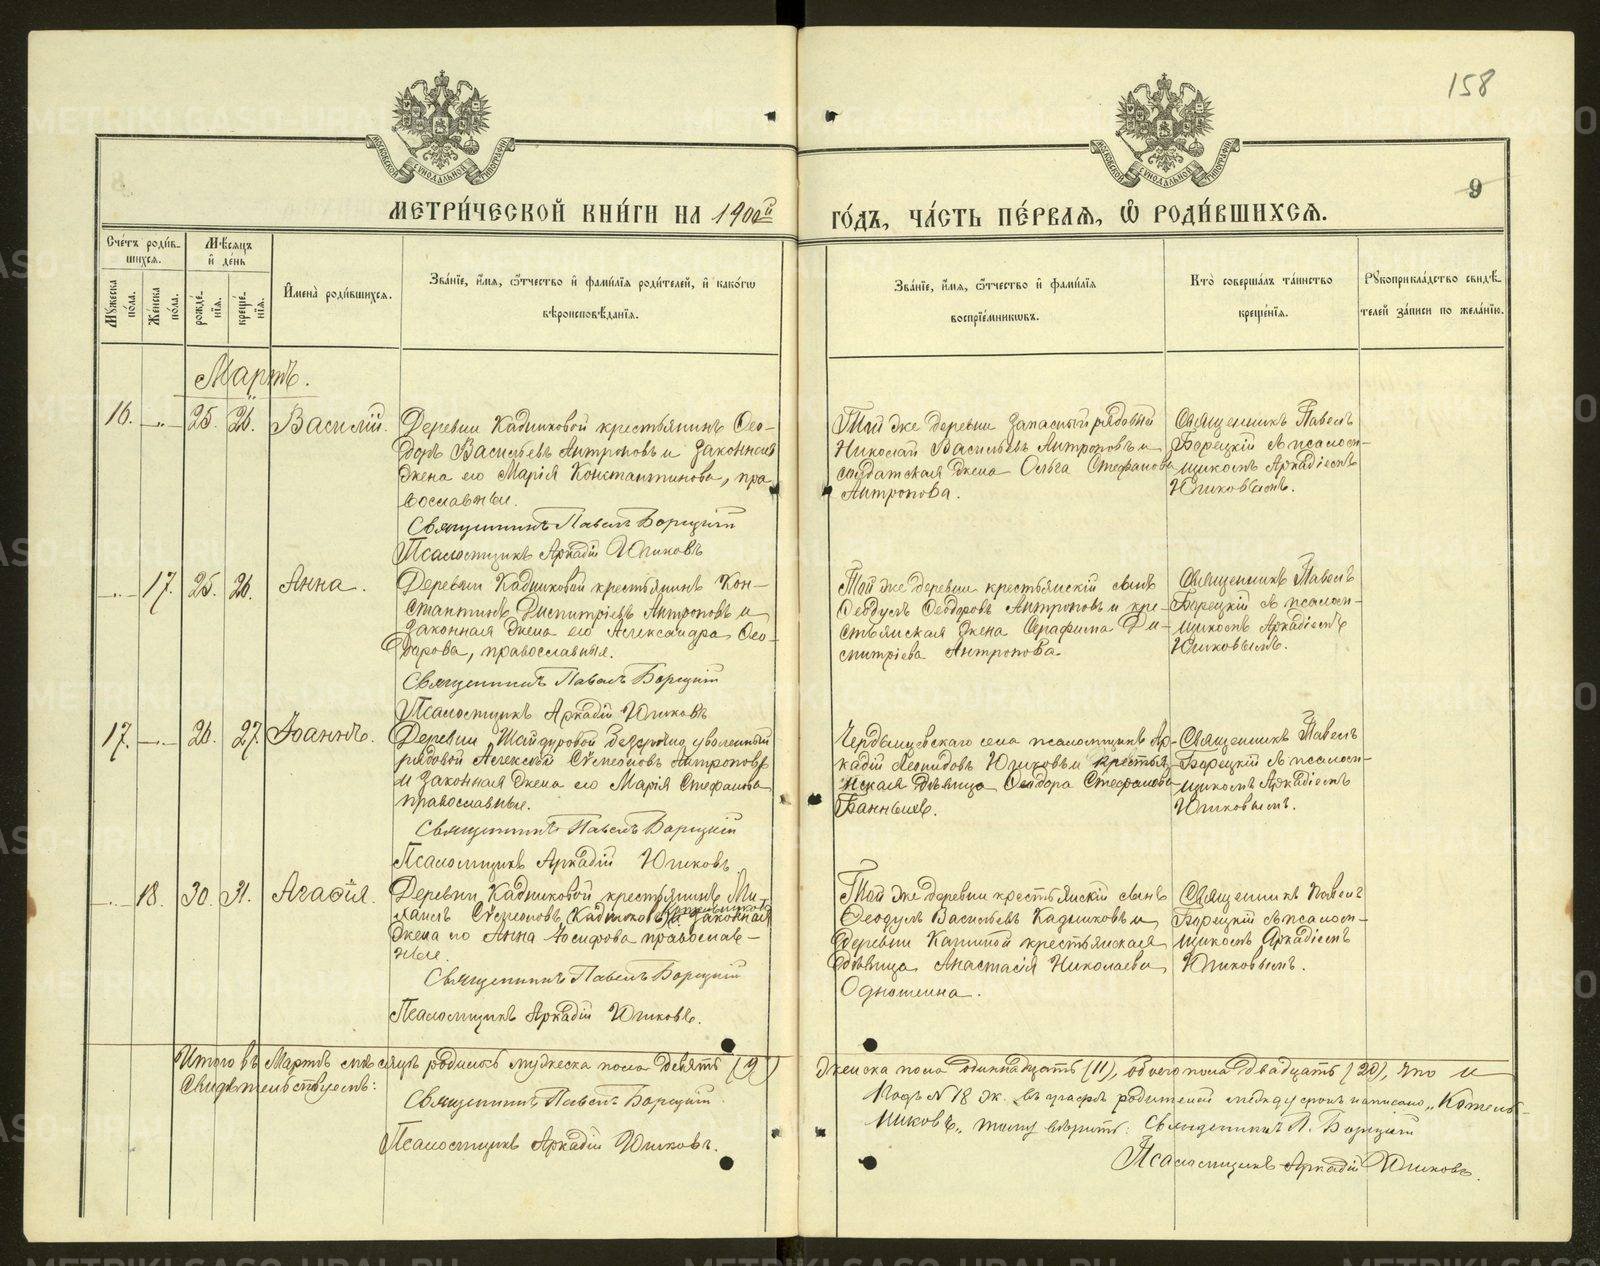 158
9
МЕТРИ́ЧЕСКОЙ КНИ́ГИ НА 1900й
ГО́ДЪ, ЧА́СТЬ ПЕ́РВАЯ, Ѡ҆ РОДИ́ВШИХСЯ.
Сче́тъ роди́в-
шихся.
Мѣ́сяцъ
и҆ день
Мꙋжеска по́ла.
Же́нска по́ла.
рожде́-
нїя.
креще́-
нїя.
И҆мена̀ роди́вшихся.
Зва́нїе, и҆́мя, ѻ҆́тчество и҆ фами́лїя роди́телей, и҆ како́гѡ
вѣроисповѣ́данїя.
Зва́нїе, и҆́мя, ѻ҆́тчество и҆ фами́лїя
воспрїе́мникѡвъ.
Кто̀ соверша́лъ та́инство
креще́нїя.
Рꙋкоприкла́дство свидѣ́-
телей за́писи по жела́нїю.
Мартъ.
16. -„- 25. 26. Василій.
Деревни Кадниковой крестьянинъ Ѳео-
доръ Васильевъ Антроповъ и законная
жена его Марія Константинова, пра
вославные.
Священникъ Павелъ Борецкій
Псаломщикъ Аркадій Юшковъ
Той же деревни запасный рядовый
Николай Васильевъ Антроповъ и
солдатская жена Ольга Стефанова
Антропова.
Священникъ Павелъ
Борецкій съ псалом-
щикомъ Аркадіемъ
Юшковымъ.
-„- 17. 25. 26. Анна.
Деревни Кадниковой крестьянинъ Кон-
стантинъ Димитріевъ Антроповъ и
законная жена его Александра Ѳео-
дорова, православные.
Священникъ Павелъ Борецкій
Псаломщикъ Аркадій Юшковъ
Той же деревни крестьянскій сынъ
Ѳеодулъ Ѳеодоровъ Антроповъ и кре-
стьянская жена Серафима Ди-
митріева Антропова.
Священникъ Павелъ
Борецкій съ псалом-
щикомъ Аркадіемъ
Юшковымъ.
17. -„- 26. 27. Іоаннъ.
Деревни Шайдуровой безсрочно уволенный
рядовой Алексій Сѵмеоновъ Антроповъ
и законная жена его Марія Стефанова
православные.
Священникъ Павелъ Борецкій
Псаломщикъ Аркадій Юшковъ
Чердынцевскаго села псаломщикъ Ар-
кадій Леонидовъ Юшковъ и крестья
нская дѣвица Ѳеодора Стефанова
Священникъ Павелъ
Борецкій съ псалом-
щикомъ Аркадіемъ
Юшковымъ.
-„- 18. 30. 31. Агаѳія.
Деревни Кадниковой крестьянинъ Ми-
хаилъ Сѵмеоновъ Кадниковъ и законная
жена его Анна Іосифова православ-
ные.
Священникъ Павелъ Борецкій
Псаломщикъ Аркадій Юшковъ.
Той же деревни крестьянскій сынъ
Ѳеодулъ Васильевъ Кадниковъ и
деревни крестьянская
дѣвица Анастасія Николаева
Одношеина.
Священникъ Павелъ
Борецкій съ псалом-
щикомъ Аркадіемъ
Юшковымъ.
Итого въ Мартѣ мѣсяцѣ родилось мужеска пола девять (9)
женска пола одиннадцать (11), обоего пола двадцать (20), что и
Свидѣтельствуемъ:
Священникъ Павелъ Борецкій.
Псаломщикъ Аркадій Юшковъ.
Подъ № 18 ж. въ графѣ родителей между строкъ написано „Котель-
никовъ„ тому вѣрить: Священникъ П. Борецкій
Псаломщикъ Аркадій Юшковъ.
METRIKI.GASO-URAL.RU